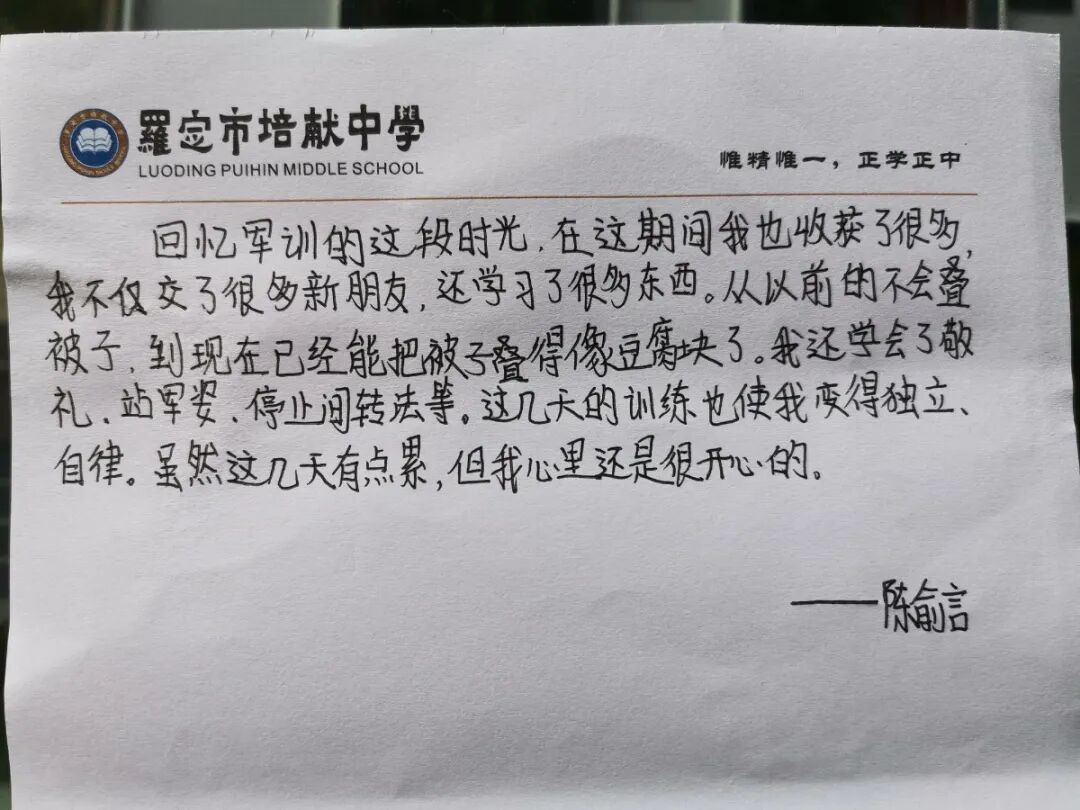 羅定市培献中學
LUODING PUIHIN MIDDLE SCHOOL
惟精惟一，正学正中
回忆军训的这段时光，在这期间我也收获了很多，
我不仅交了很多新朋友，还学习了很多东西。从以前的不会叠
被子，到现在已经能把被子叠得像豆腐块了。我还学会了敬
礼、站军姿、停止间转法等。这几天的训练也使我变得独立、
自律。虽然这几天有点累，但我心里还是很开心的。
——陈俞言